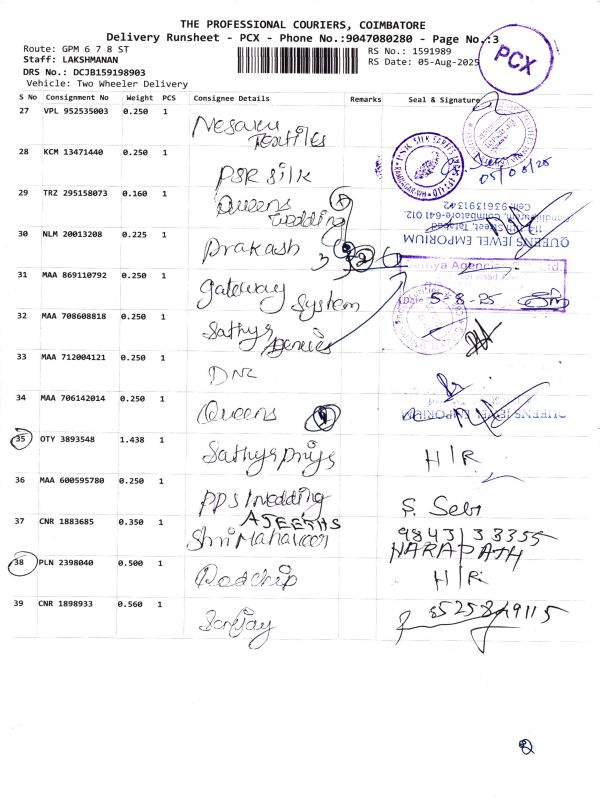 THE PROFESSIONAL COURIERS, COIMBATORE
Delivery Runsheet - PCX - Phone No.:9047080280 - Page No.:3
Route: GPM 6 7 8 ST
RS No.: 1591989
Staff: LAKSHMANAN
RS Date: 05-Aug-2025
DRS No.: DCJB159198903
Vehicle: Two Wheeler Delivery
PCX
S No Consignment No Weight PCS Consignee Details Remarks Seal & Signature
27 VPL 952535003 0.250 1
Textiles
28 KCM 13471440 0.250 1 PSR Silk
05/08/25
29 TRZ 295158073 0.160 1 Queens wedding
Cell:9361391342
Gandhipuram, Coimbatore-641 012.
QUEENS JEWEL EMPORIUM
30 NLM 20013208 0.225 1 Prakash
31 MAA 869110792 0.250 1 Gateway System
5-8-25
32 MAA 708608818 0.250 1 Sathya Agencies
33 MAA 712004121 0.250 1
34 MAA 706142014 0.250 1 Queens
QUEENS JEWEL EMPORIUM
35 OTY 3893548 1.438 1 Sathya Priya H/R
36 MAA 600595780 0.250 1 PPS Wedding
37 CNR 1883685 0.350 1 Shri Mahaveer
9843133355
38 PLN 2398040 0.500 1 H/R
39 CNR 1898933 0.560 1 Sanjay